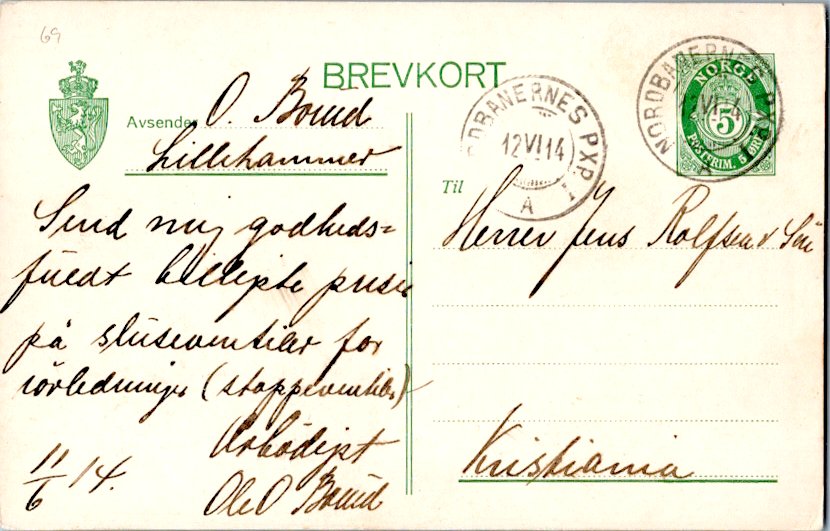 69
BREVKORT
Avsender O. Bruud
Lillehammer
Send mig godheds=
fuldt billigste priser
på sluseventiler for
rörledninger (stoppeventiler)
Ærbödigst
Ole O Bruud
11/6 14.
NORDBANERNES PXP I
12 VI 14
A
NORGE
5
POSTFRIM. 5 ØRE
NORDBANERNES PXP I
12 VI 14
A
Til Herrer Jens Rolfsen & Sön
Kristiania